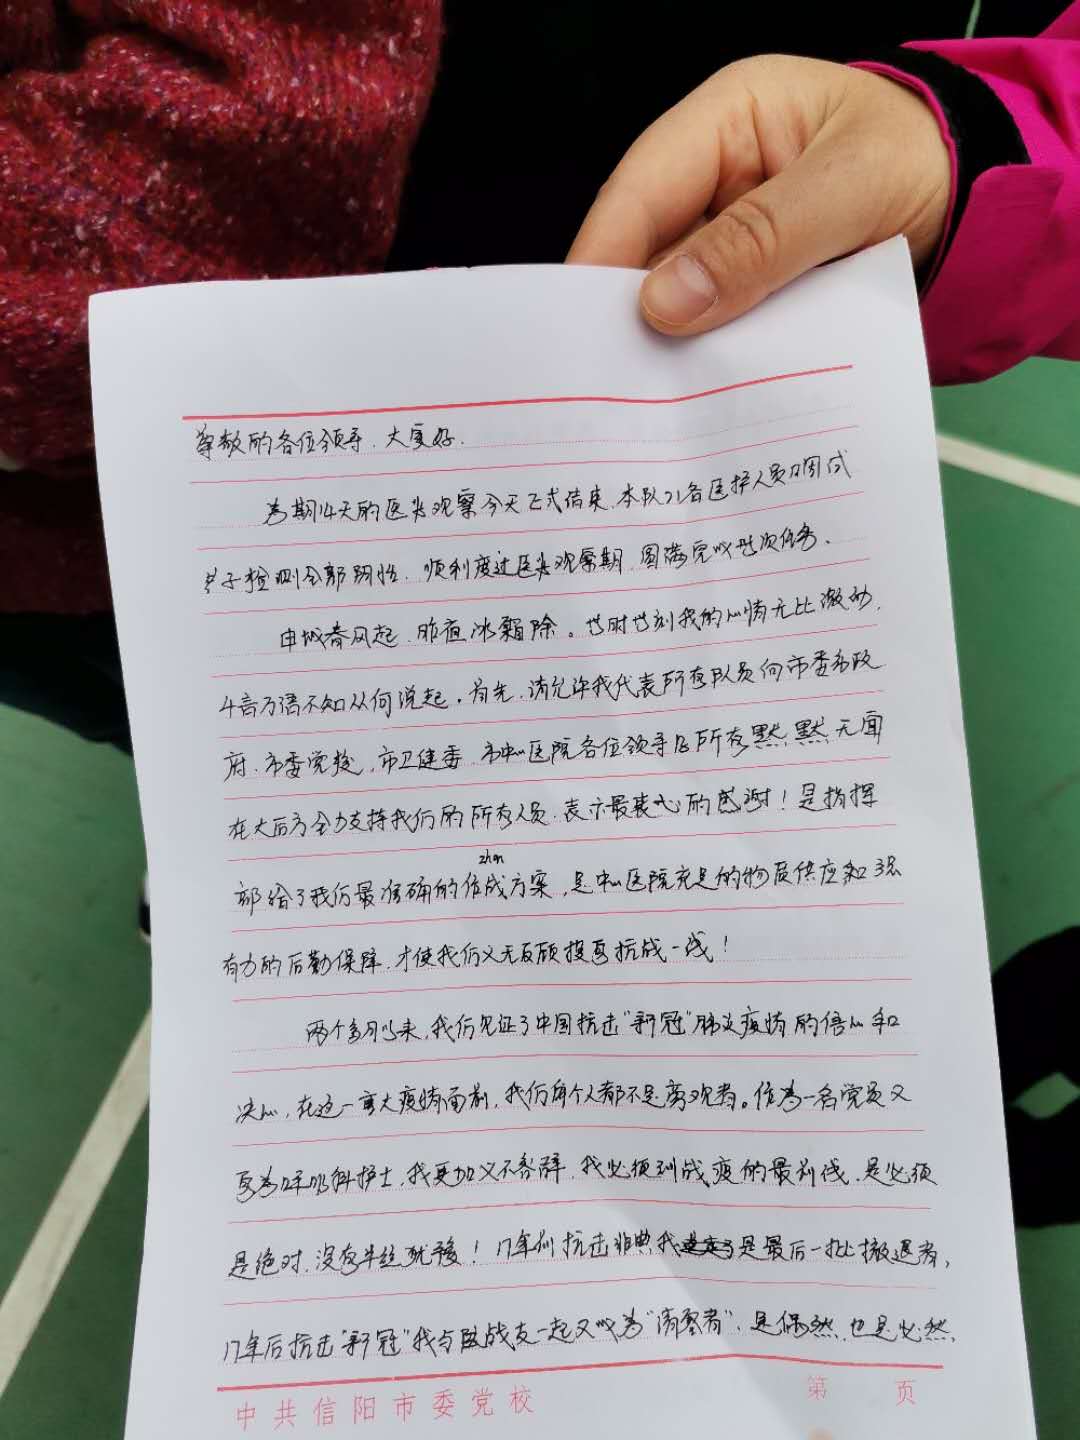 尊敬的各位领导、大家好.
为期14天的医学观察今天正式结束.本队21名医护人员及
核子检测全部阴性.顺利度过医学观察期.圆满完成此次任务.
申城春风起.昨夜冰霜除。此时此刻我的心情无比激动.
千言万语不知从何说起.首先.请允许我代表所有队员向市委市政
府.市委党校.市卫健委.市中心医院各位领导及所有默默无闻
在大后方全力支持我们的所有人员.表示最衷心的感谢!是指挥
zhan
部给了我们最准确的作战方案,是中心医院充足的物质供应和强
有力的后勤保障.才使我们义无反顾投身抗战一线!
两个多月以来.我们见证了中国抗击"新冠"肺炎疫情的信心和
决心,在这一重大疫情面前,我们每个人都不是旁观者。作为一名党员又
身为呼吸科护士.我更加义不容辞.我必须到战疫的最前线.是必须
是绝对.没有半丝犹豫!17年前抗击非典我是最后一批撤退者,
17年后抗击"新冠"我与战友一起又成为"清零者".是偶然.也是必然.
中共信阳市委党校
第 页